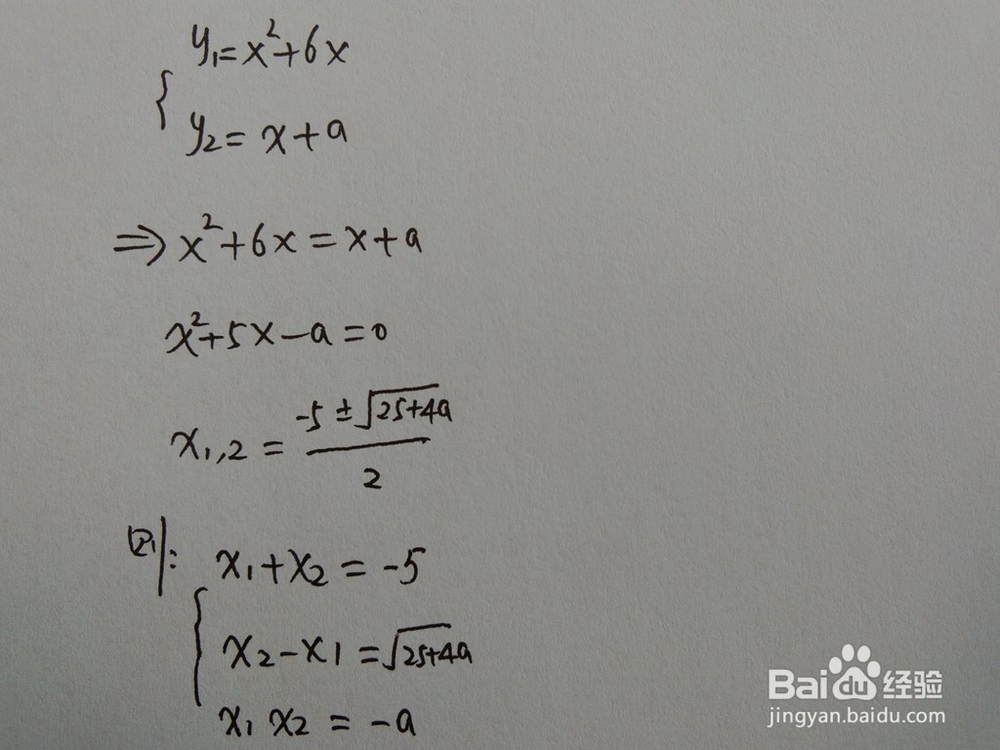 y₁=x²+6x
y₂=x+a
⇒x²+6x=x+a
x²+5x-a=0
x₁,₂=(-5±√(25+4a))/2
则:
x₁+x₂=-5
x₂-x₁=√(25+4a)
x₁x₂=-a
Baidu经验
jingyan.baidu.com